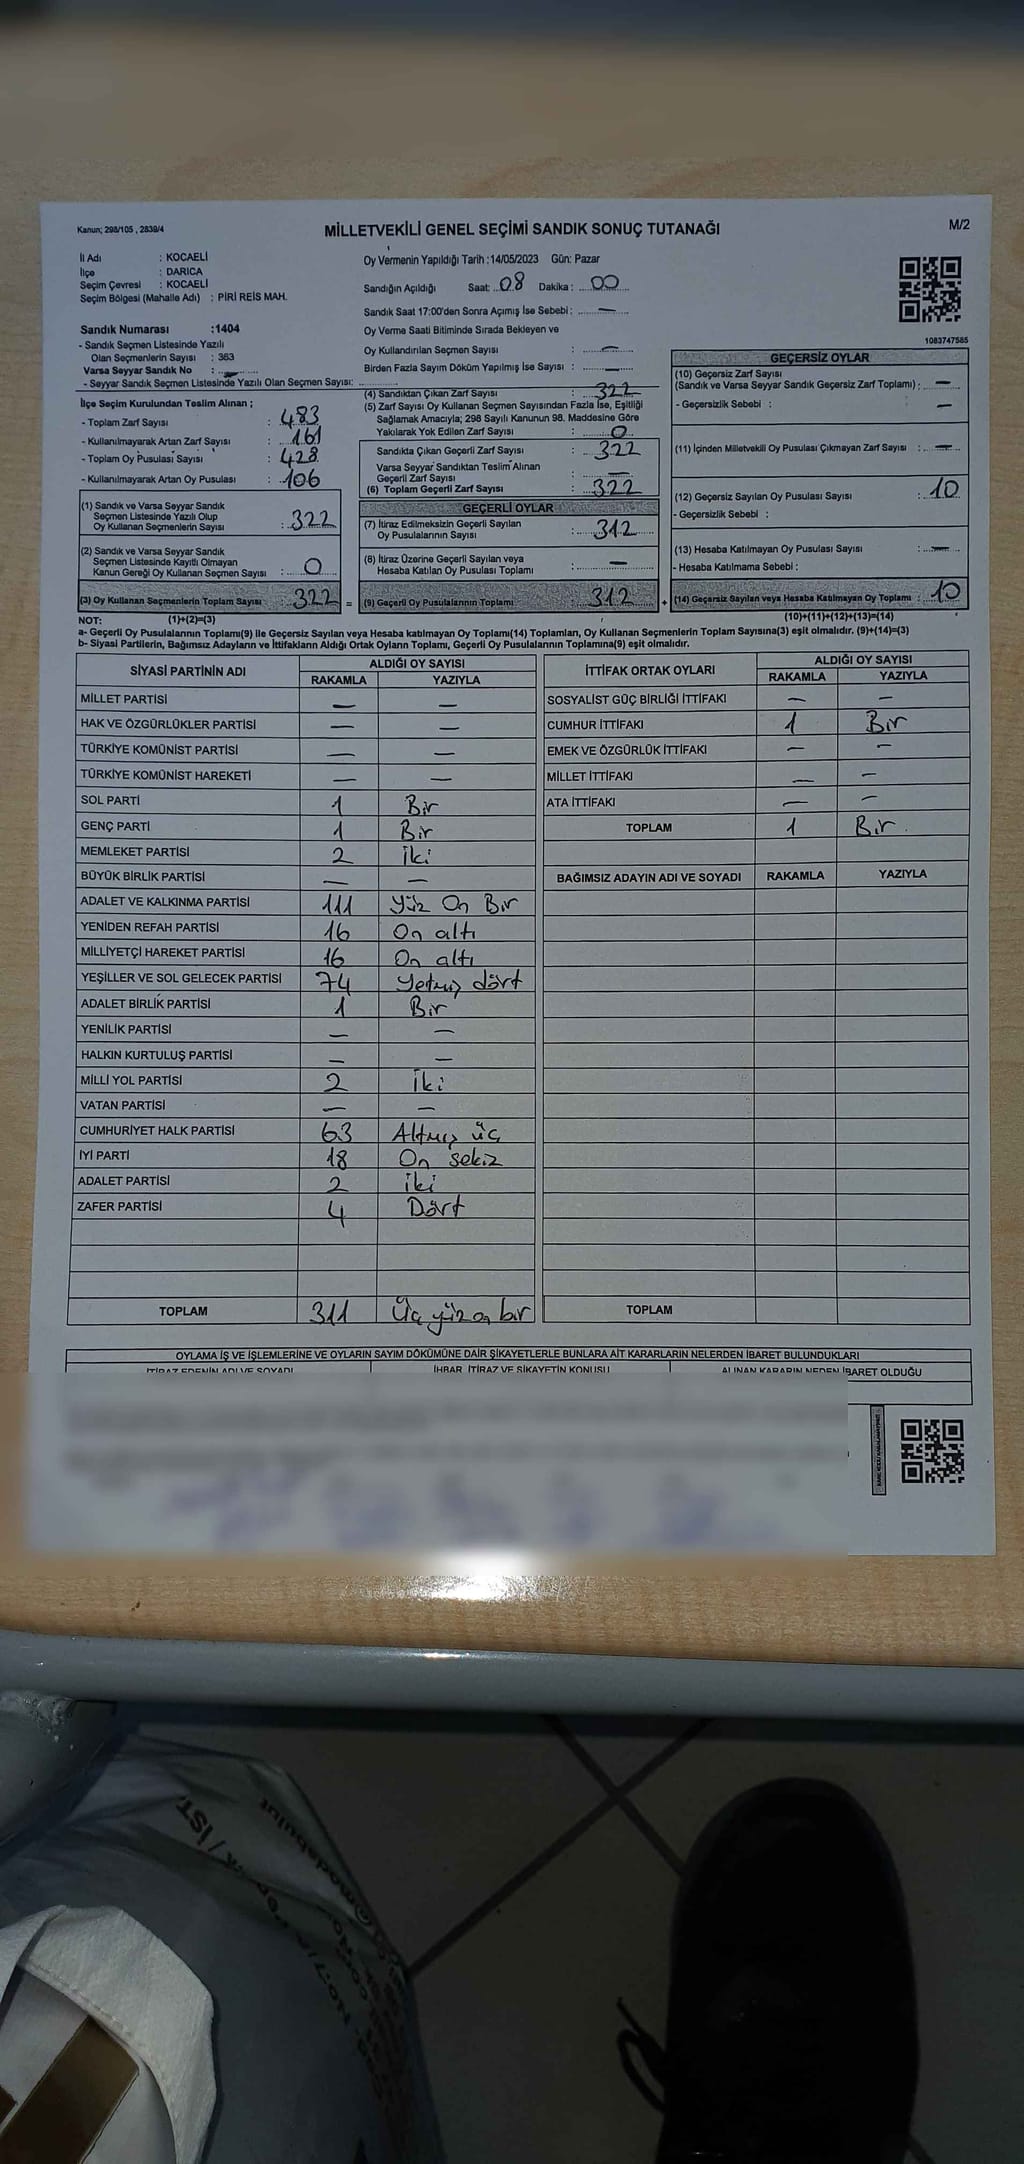 Kanun; 298/105 , 2839/4
MİLLETVEKİLİ GENEL SEÇİMİ SANDIK SONUÇ TUTANAĞI
M/2
İl Adı : KOCAELİ
İlçe : DARICA
Seçim Çevresi : KOCAELİ
Seçim Bölgesi (Mahalle Adı) : PİRİ REİS MAH.
Sandık Numarası :1404
- Sandık Seçmen Listesinde Yazılı
Olan Seçmenlerin Sayısı : 363
Varsa Seyyar Sandık No : —
- Seyyar Sandık Seçmen Listesinde Yazılı Olan Seçmen Sayısı:
Oy Vermenin Yapıldığı Tarih :14/05/2023 Gün: Pazar
Sandığın Açıldığı Saat: 08 Dakika : 00
Sandık Saat 17:00'den Sonra Açımış İse Sebebi : —
Oy Verme Saati Bitiminde Sırada Bekleyen ve
Oy Kullandırılan Seçmen Sayısı : —
Birden Fazla Sayım Döküm Yapılmış İse Sayısı : —
1083747585
İlçe Seçim Kurulundan Teslim Alınan ;
- Toplam Zarf Sayısı : 483
- Kullanılmayarak Artan Zarf Sayısı : 161
- Toplam Oy Pusulası Sayısı : 428
- Kullanılmayarak Artan Oy Pusulası : 106
(1) Sandık ve Varsa Seyyar Sandık
Seçmen Listesinde Yazılı Olup
Oy Kullanan Seçmenlerin Sayısı : 322
(2) Sandık ve Varsa Seyyar Sandık
Seçmen Listesinde Kayıtlı Olmayan
Kanun Gereği Oy Kullanan Seçmen Sayısı : 0
(3) Oy Kullanan Seçmenlerin Toplam Sayısı 322 =
(4) Sandıktan Çıkan Zarf Sayısı : 322
(5) Zarf Sayısı Oy Kullanan Seçmen Sayısından Fazla İse, Eşitliği
Sağlamak Amacıyla; 298 Sayılı Kanunun 98. Maddesine Göre
Yakılarak Yok Edilen Zarf Sayısı : 0
Sandıkta Çıkan Geçerli Zarf Sayısı : 322
Varsa Seyyar Sandıktan Teslim Alınan
Geçerli Zarf Sayısı : —
(6) Toplam Geçerli Zarf Sayısı : 322
GEÇERLİ OYLAR
(7) İtiraz Edilmeksizin Geçerli Sayılan
Oy Pusulalarının Sayısı : 312
(8) İtiraz Üzerine Geçerli Sayılan veya
Hesaba Katılan Oy Pusulası Toplamı : —
(9) Geçerli Oy Pusulalarının Toplamı : 312 +
GEÇERSİZ OYLAR
(10) Geçersiz Zarf Sayısı
(Sandık ve Varsa Seyyar Sandık Geçersiz Zarf Toplamı) : —
- Geçersizlik Sebebi : —
(11) İçinden Milletvekili Oy Pusulası Çıkmayan Zarf Sayısı : —
(12) Geçersiz Sayılan Oy Pusulası Sayısı : 10
- Geçersizlik Sebebi :
(13) Hesaba Katılmayan Oy Pusulası Sayısı : —
- Hesaba Katılmama Sebebi :
(14) Geçersiz Sayılan veya Hesaba Katılmayan Oy Toplamı : 10
NOT: (1)+(2)=(3) (10)+(11)+(12)+(13)=(14)
a- Geçerli Oy Pusulalarının Toplamı(9) ile Geçersiz Sayılan veya Hesaba katılmayan Oy Toplamı(14) Toplamları, Oy Kullanan Seçmenlerin Toplam Sayısına(3) eşit olmalıdır. (9)+(14)=(3)
b- Siyasi Partilerin, Bağımsız Adayların ve İttifakların Aldığı Ortak Oyların Toplamı, Geçerli Oy Pusulalarının Toplamına(9) eşit olmalıdır.
SİYASİ PARTİNİN ADI ALDIĞI OY SAYISI
RAKAMLA YAZIYLA
MİLLET PARTİSİ — —
HAK VE ÖZGÜRLÜKLER PARTİSİ — —
TÜRKİYE KOMÜNİST PARTİSİ — —
TÜRKİYE KOMÜNİST HAREKETİ — —
SOL PARTİ 1 Bir
GENÇ PARTİ 1 Bir
MEMLEKET PARTİSİ 2 İki
BÜYÜK BİRLİK PARTİSİ — —
ADALET VE KALKINMA PARTİSİ 111 Yüz On Bir
YENİDEN REFAH PARTİSİ 16 On altı
MİLLİYETÇİ HAREKET PARTİSİ 16 On altı
YEŞİLLER VE SOL GELECEK PARTİSİ 74 Yetmiş dört
ADALET BİRLİK PARTİSİ 1 Bir
YENİLİK PARTİSİ — —
HALKIN KURTULUŞ PARTİSİ — —
MİLLİ YOL PARTİSİ 2 İki
VATAN PARTİSİ — —
CUMHURİYET HALK PARTİSİ 63 Altmış üç
İYİ PARTİ 18 On sekiz
ADALET PARTİSİ 2 İki
ZAFER PARTİSİ 4 Dört
TOPLAM 311 Üç yüz on bir
İTTİFAK ORTAK OYLARI ALDIĞI OY SAYISI
RAKAMLA YAZIYLA
SOSYALİST GÜÇ BİRLİĞİ İTTİFAKI — —
CUMHUR İTTİFAKI 1 Bir
EMEK VE ÖZGÜRLÜK İTTİFAKI — —
MİLLET İTTİFAKI — —
ATA İTTİFAKI — —
TOPLAM 1 Bir
BAĞIMSIZ ADAYIN ADI VE SOYADI RAKAMLA YAZIYLA
TOPLAM
OYLAMA İŞ VE İŞLEMLERİNE VE OYLARIN SAYIM DÖKÜMÜNE DAİR ŞİKAYETLERLE BUNLARA AİT KARARLARIN NELERDEN İBARET BULUNDUKLARI
İTİRAZ EDENİN ADI VE SOYADI İHBAR, İTİRAZ VE ŞİKAYETİN KONUSU ALINAN KARARIN NEDEN İBARET OLDUĞU
@modabulut